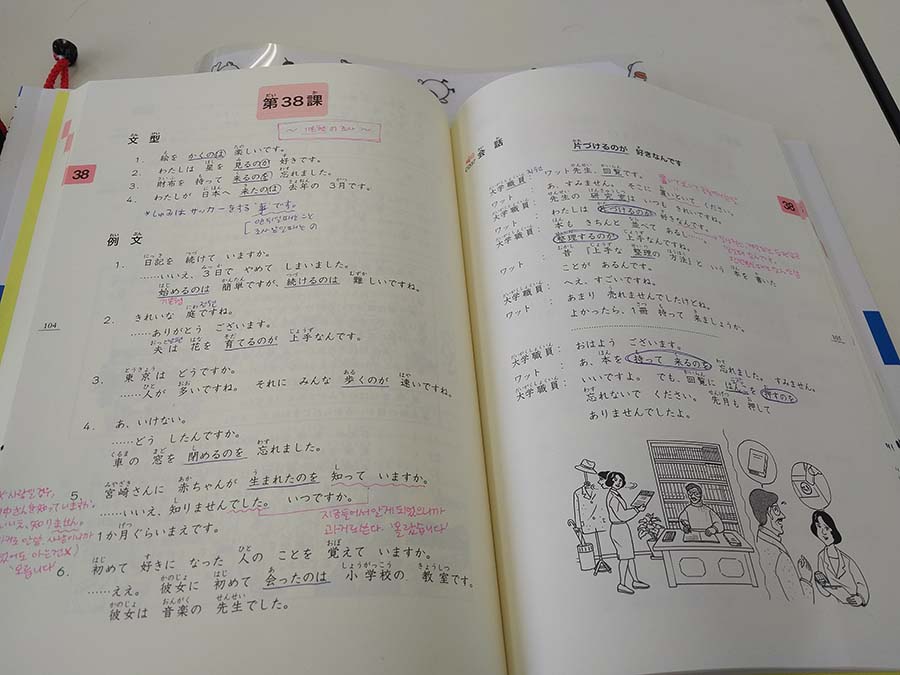 第38課
文型
1. 絵を かくのは 楽しいです。
2. わたしは 星を 見るのが 好きです。
3. 財布を 持って 来るのを 忘れました。
4. わたしが 日本へ 来たのは 去年の 3月です。
*しゅみは サッカーをする 事です。
38
例文
1. 日記を 続けて いますか。
……いいえ、3日で やめて しまいました。
始めるのは 簡単ですが、続けるのは 難しいですね。
2. きれいな 庭ですね。
……ありがとう ございます。
夫は 花を 育てるのが 上手なんです。
104
3. 東京は どうですか。
……人が 多いですね。 それに みんな 歩くのが 速いですね。
4. あ、いけない。
……どう したんですか。
車の 窓を 閉めるのを 忘れました。
5. 宮崎さんに 赤ちゃんが 生まれたのを 知って いますか。
……いいえ、知りませんでした。 いつですか。
1か月ぐらいまえです。
いいえ、知りません。
모릅니다
지금
과거로쓴다 "몰랐습니다"
6. 初めて 好きに なった 人の ことを 覚えて いますか。
……ええ。 彼女に 初めて 会ったのは 小学校の 教室です。
彼女は 音楽の 先生でした。
会話
片づけるのが 好きなんです
大学職員: ワット先生、回覧です。
ワット: あ、すみません。 そこに 置いといて ください。
大学職員: 先生の 研究室は いつも きれいですね。
ワット: わたしは 片づけるのが 好きなんです。
大学職員: 本も きちんと 並べて あるし、……。
整理するのが 上手なんですね。
ワット: 昔 「上手な 整理の 方法」と いう 本を 書いた
ことが あるんです。
大学職員: へえ、すごいですね。
ワット: あまり 売れませんでしたけどね。
よかったら、1冊 持って 来ましょうか。
38
105
大学職員: おはよう ございます。
ワット: あ、本を 持って 来るのを 忘れました。 すみません。
大学職員: いいですよ。 でも、回覧に はんこを 押すのを
忘れないで ください。 先月も 押して
ありませんでしたよ。